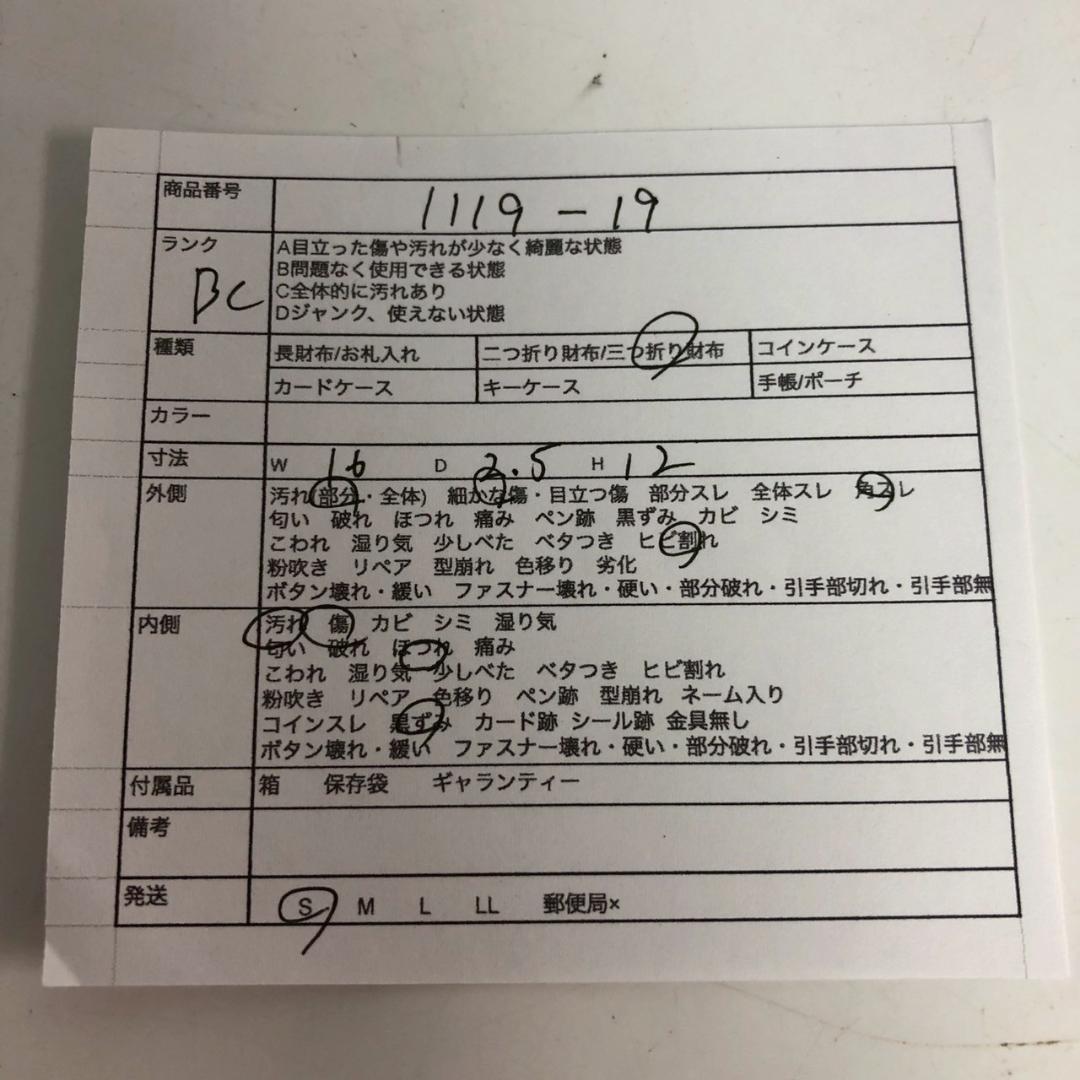 商品番号 1119-19
ランク BC
A目立った傷や汚れが少なく綺麗な状態
B問題なく使用できる状態
C全体的に汚れあり
Dジャンク、使えない状態
種類 長財布/お札入れ 二つ折り財布/三つ折り財布 コインケース
カードケース キーケース 手帳/ポーチ
カラー
寸法 W 16 D 2.5 H 12
外側 汚れ(部分・全体) 細かな傷・目立つ傷 部分スレ 全体スレ 角スレ
匂い 破れ ほつれ 痛み ペン跡 黒ずみ カビ シミ
こわれ 湿り気 少しべた ベタつき ヒビ割れ
粉吹き リペア 型崩れ 色移り 劣化
ボタン壊れ・緩い ファスナー壊れ・硬い・部分破れ・引手部切れ・引手部無
内側 汚れ 傷 カビ シミ 湿り気
匂い 破れ ほつれ 痛み
こわれ 湿り気 少しべた ベタつき ヒビ割れ
粉吹き リペア 色移り ペン跡 型崩れ ネーム入り
コインスレ 黒ずみ カード跡 シール跡 金具無し
ボタン壊れ・緩い ファスナー壊れ・硬い・部分破れ・引手部切れ・引手部無
付属品 箱 保存袋 ギャランティー
備考
発送 S M L LL 郵便局×